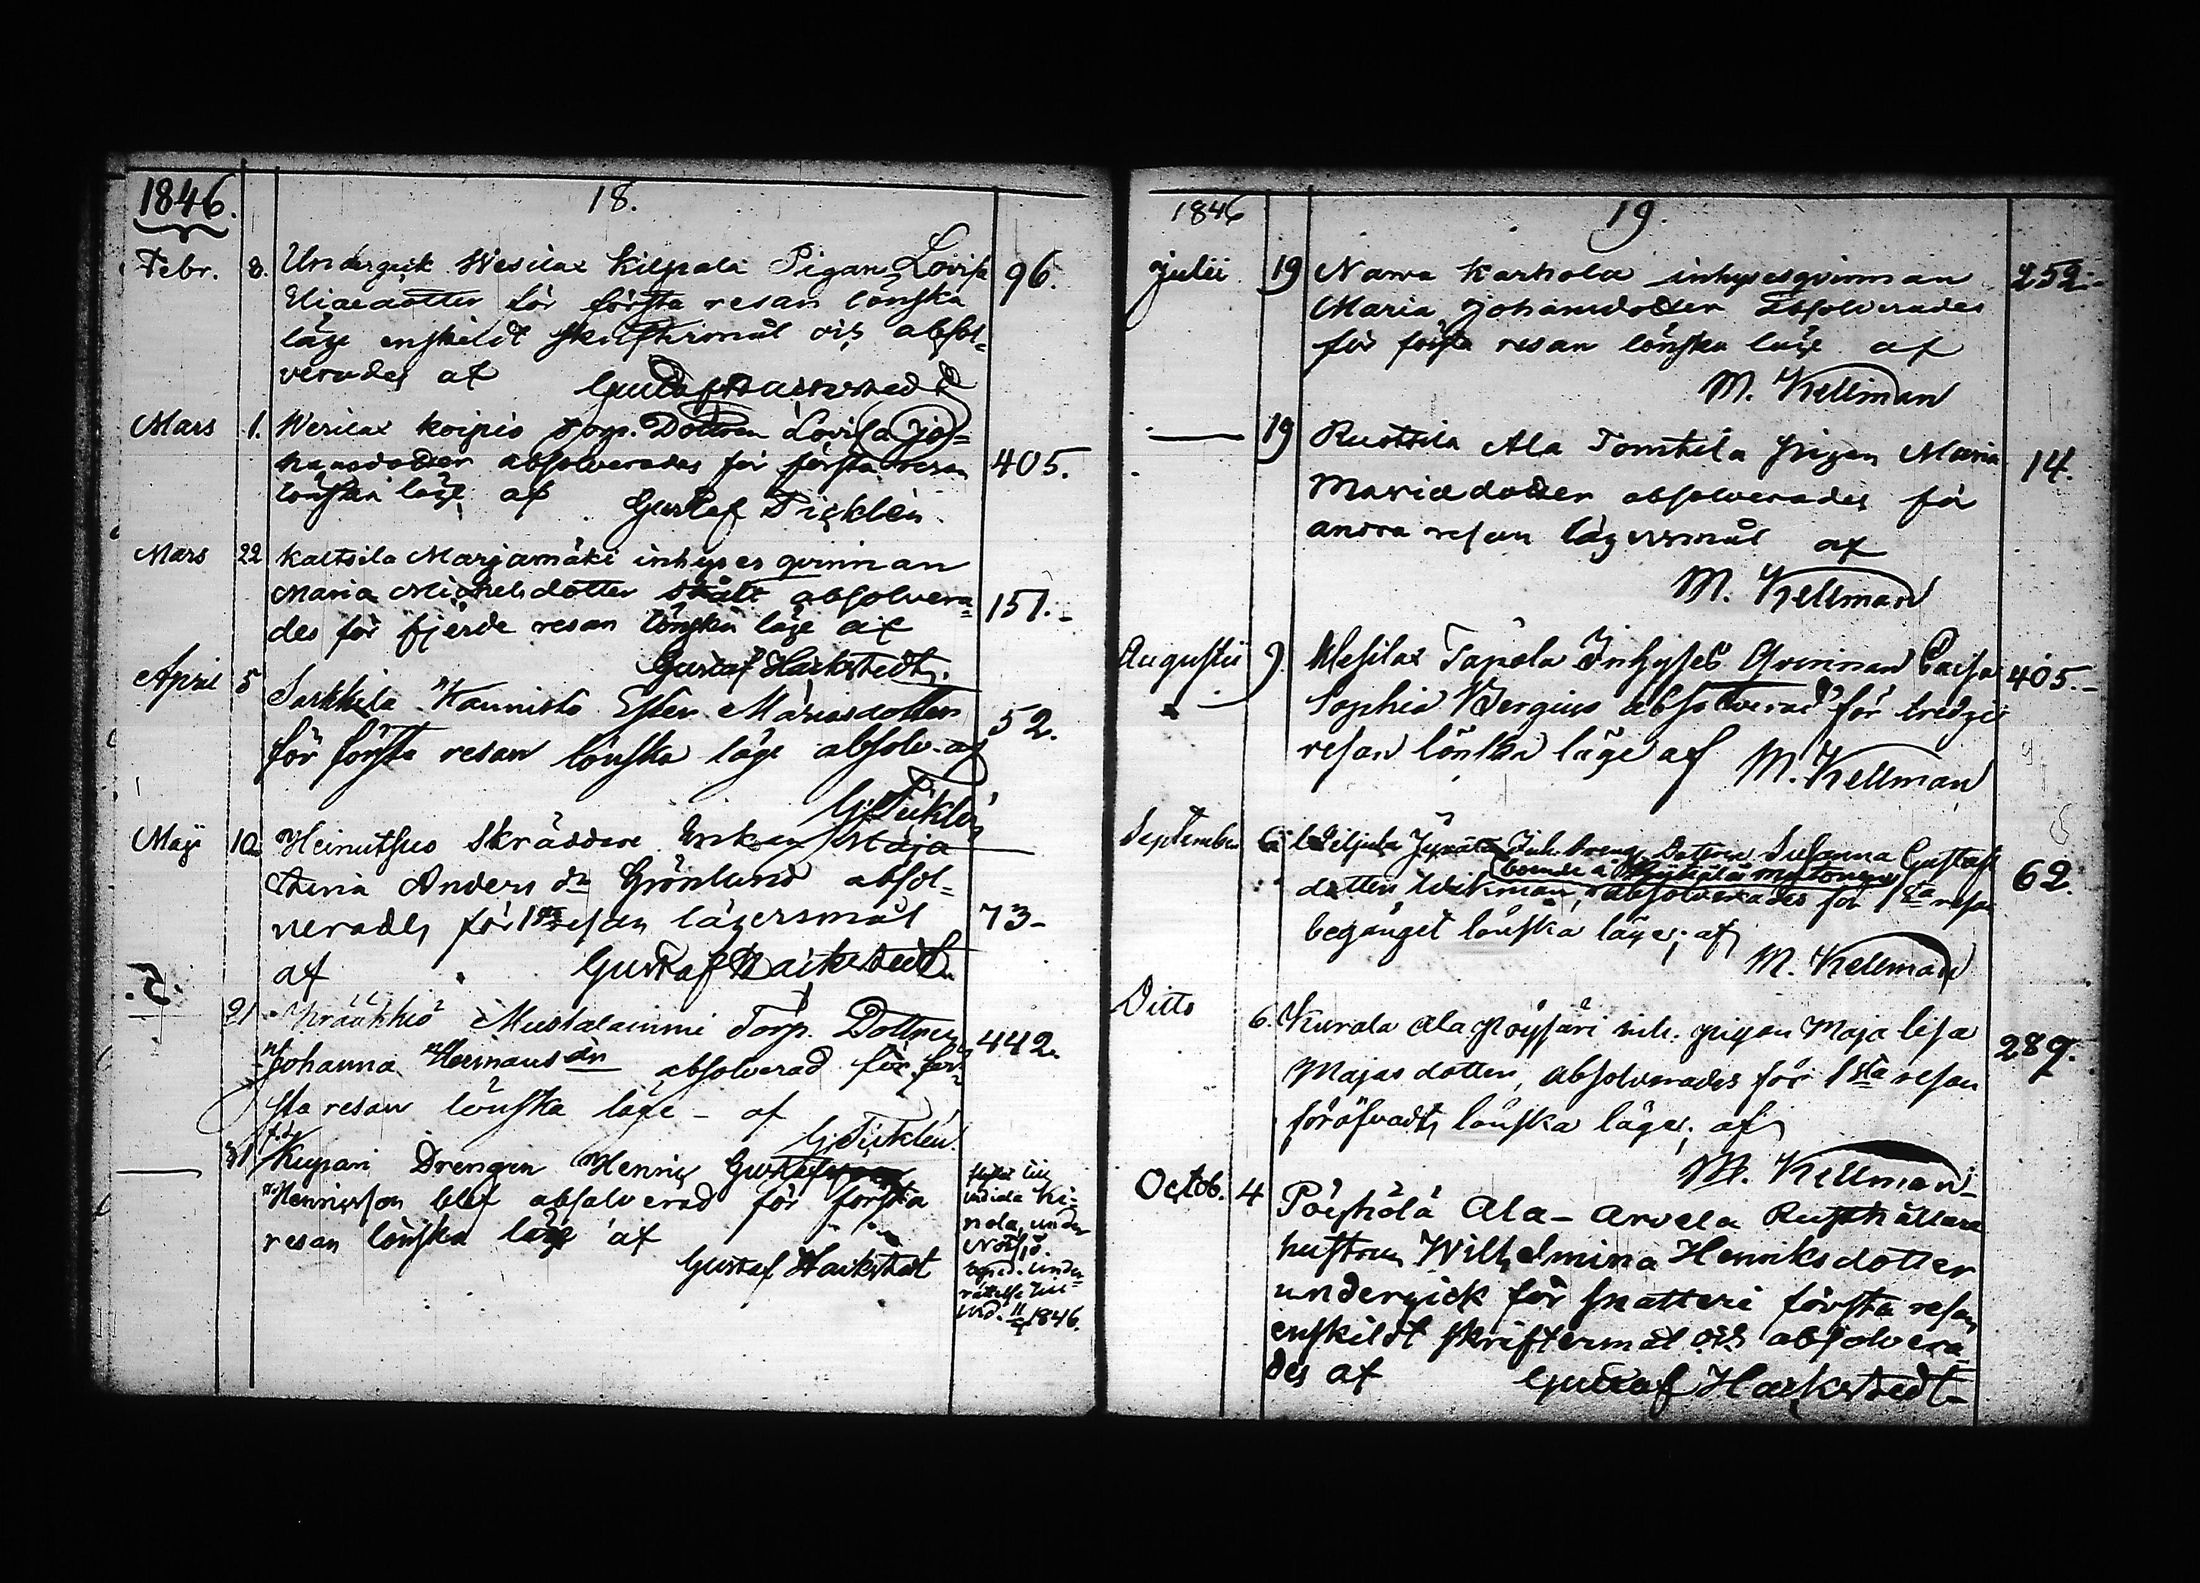 1846.
18.
Febr. 8. Undergick Wesilax Kilpala Pigan Lovisa 96.
Eliaedotter för första resan lönska
läge enskildt skriftermål och absol-
verades af Gustaf Hackstedt
Mars 1. Wesilax Koipio torp. Dottren Lovisa Jo-
hansdotter absolverades för första resan 405.
lönska läge af Gustaf Ticklén
Mars 22 Kaltsila Marjamäki inhyses qvinnan
Maria Michelsdotter absolvera- 151.-
des för fjerde resan lönska läge af
Gustaf Hackstedt.
April 5 Sarkkila Hannisto Ester Mariasdotter 52.
för första resan lönska läge absolv. af
G. Ticklén
Maji 10. Heinuthuo Skräddare Enkan Maja
Anders dr Grönlund absol-
verades för 1sta resan lägersmål 73-
af Gustaf Hackstedt
21 Krääkkiö Mustalammi Torp. Dottren 442.
Johanna Hermans dr absolverad för för-
sta resan lönska läge - af
G. Ticklén.
31 Kupari Drengen Henric
Henricsson blef absolverad för första
resan lönska läge af
Gustaf Hackstedt
till
Ki-
nola under
under-
rättelse till
1846.
1846
19.
Julii 19 Narva Karhola inhysesqvinnan 252-
Maria Johansdotter absolverades
för första resan lönska läge af
M. Kellman
— 19 Ruottila Ala Tomtila pigan Maria 14.
Mariaedotter absolverades för
andra resan lägersmål af
M. Kellman
Augustii 9. Wesilax Tapola Inhyses Qvinnan Caisa 405.-
Sophia Bergius absolverad för tredje
resan lönska läge af M. Kellman
September 6 Dottren Susanna Gustafs 62.
boende å
dotter Wikman, absolverades för 1sta resan
begånget lönska läge; af
M. Kellman
Ditto 6. Kurala Ala Pöysäri inh. pigan Maja Lisa 289.
Majas dotter, absolverades för 1sta resan
föröfvadt lönska läge; af
M. Kellman
Octob. 4 Pöyhölä Ala-Arvela Rusthållare
hustrun Wilhelmina Henriksdotter
undergick för snatteri första resan
enskildt skriftermål och absolvera-
des af Gustaf Hackstedt